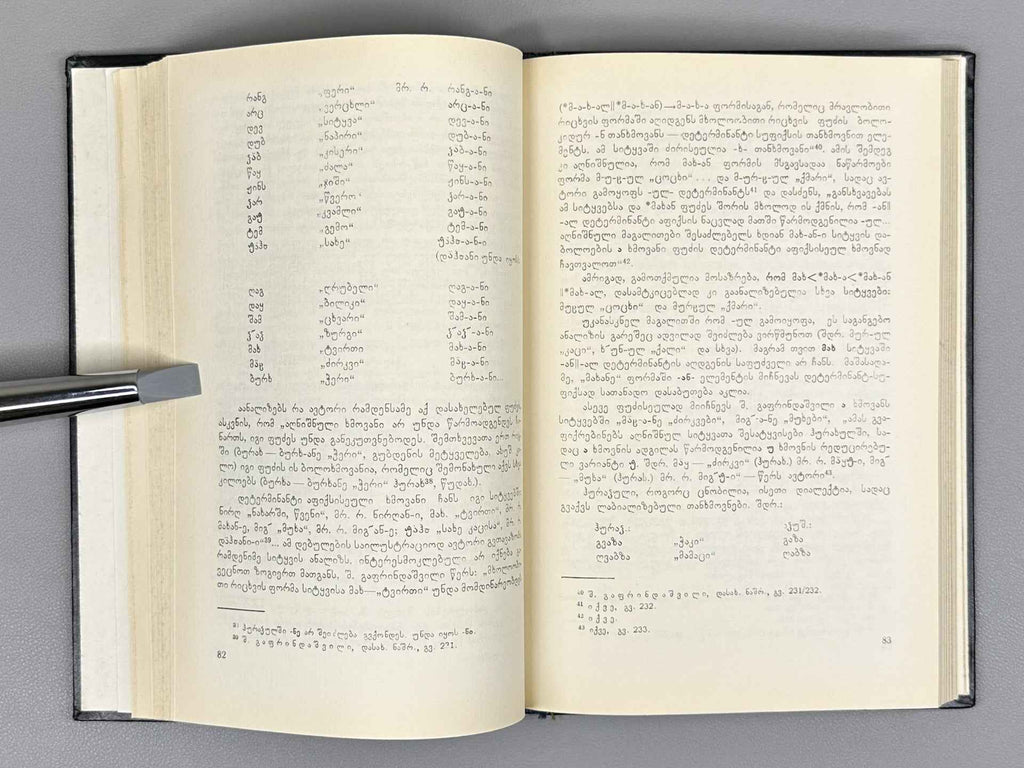 რანგ „ფერი“ მრ. რ. რანგ-ა-ნი
არც „ვერცხლი“ არც-ა-ნი
დევ „სიტყვა“ დევ-ა-ნი
დუბ „ნაპირი“ დუბ-ა-ნი
კაბ „კისერი“ კაბ-ა-ნი
წაყ „ძალა“ წაყ-ა-ნი
ჟინს „ჯიში“ ჟინს-ა-ნი
კარ „წვერო“ კარ-ა-ნი
გაჟ „კვამლი“ გაჟ-ა-ნი
ტემ „გემო“ ტემ-ა-ნი
„სახე“
უნდა იყოს
ღაგ „ღრუბელი“ ღაგ-ა-ნი
დაყ „ბილიკი“ დაყ-ა-ნი
შამ „ცხვარი“ შამ-ა-ნი
„ზურგი“
მახ „ტვირთი მახ-ა-ნი
„ძირკვი“
ბურხ „ჭერი“ ბურხ-ა-ნი...
აანალიზებს რა ავტორი რამდენსამე აქ დასახელებულ
ასკვნის, რომ „აღნიშნული ხმოვანი არ უნდა წარმოადგენდეს
ნართს, იგი ფუძეს უნდა განეკუთვნებოდეს. შემთხვევათა ერთ
ში (ბურახ — ბურხ-ანე „ჭერი“, გუბდენის მეტყველება,
ლო) იგი ფუძის ის ბოლოხმოვანია, რომელიც შემონახული აქვს
კილოებს (ბურხა — ბურხანე „ჭერი“ ჰურახ³⁸, წუდახ.).
დეტერმინანტი აფიქსისეული ხმოვანი ჩანს იგი სიტყვებში
ნირღ „ნახარში, წვენი“, მრ. რ. ნირღან-ი, მახ. „ტვირთი“, მრ.
„მუხა“, მრ. რ. „სახე კაცისა“, მრ.
ამ დებულების საილუსტრაციოდ ავტორი
რამდენიმე სიტყვის ანალიზს. ინტერესმოკლებული არ იქნება
ვეცნოთ ზოგიერთ მათგანს. შ. გაფრინდაშვილი წერს: „მხოლოობი
თი რიცხვის ფორმა სიტყვისა მახ — „ტვირთი“ უნდა მომდინარეობდეს
ჰურახულში -ნე არ შეიძლება გვქონდეს. უნდა იყოს -ნი.
³⁹ შ. გაფრინდაშვილი, დასახ. ნაშრ., გვ. 231.
82
(*მ-ა-ხ-ალ||*მ-ა-ხ-ან)→მ-ა-ხ-ა ფორმისაგან, რომელიც მრავლობითი
რიცხვის ფორმაში აღიდგენს მხოლოობითი რიცხვის ფუძის ბოლო-
კიდურ -ნ თანხმოვანს — დეტერმინანტი სუფიქსის თანხმოვნით ელე-
მენტს. ამ სიტყვაში ძირისეულია -ხ- თანხმოვანი“⁴⁰. ამის შემდეგ
კი აღნიშნულია, რომ მახ-ან ფორმის მსგავსადაა ნაწარმოები
ფორმა „ცოცხი“ . . . და „ქმარი“, სადაც ავ-
ტორი გამოყოფს -ულ- დეტერმინანტს⁴¹ და დასძენს, „განსხვავებას
ამ სიტყვებსა და *მახან ფუძეს შორის მხოლოდ ის ქმნის, რომ -ან||
-ალ დეტერმინანტი აფიქსის ნაცვლად მათში წარმოდგენილია -ულ...
აღნიშნული მაგალითები შესაძლებელს ხდიან მახ-ან-ი სიტყვის და-
ბოლოების ა ხმოვანი ფუძის დეტერმინანტი აფიქსისეულ ხმოვნად
ჩავთვალოთ“⁴².
ამრიგად, გამოთქმულია მოსაზრება, რომ მახ<*მახ-ა<*მახ-ან
||*მახ-ალ, დასამტკიცებლად კი გაანალიზებულია სხვა სიტყვები:
„ცოცხი“ და „ქმარი“.
უკანასკნელ მაგალითში რომ -ულ გამოიყოფა, ეს საგანგებო
ანალიზის გარეშეც ადვილად შეიძლება ვირწმუნოთ (შდრ. მურ-ულ
„კაცი“, „ქალი“ და სხვა). მაგრამ თვით მახ სიტყვაში
-ან||-ალ დეტერმინანტის აღდგენის საფუძველი არ ჩანს. მაშასადა-
მე, „მახანე“ ფორმაში -ან- ელემენტის მიჩნევას დეტერმინანტ-სუ-
ფიქსად სათანადო დასაბუთება აკლია.
ასევე ფუძისეულად მიიჩნევს შ. გაფრინდაშვილი ა ხმოვანს
სიტყვებში „ძირკვები“, „მუხები“, „ამას გვა-
ფიქრებინებს აღნიშნულ სიტყვათა შესატყვისები ჰურახულში, სა-
დაც ა ხმოვნის ადგილას წარმოდგენილია უ ხმოვნის რედუცირებუ-
ლი ვარიანტი შდრ. „ძირკვი“ (ჰურახ.) მრ. რ.
— „მუხა“ (ჰურახ.) მრ. რ. — წერს ავტორი⁴³.
ჰურახული, როგორც ცნობილია, ისეთი დიალექტია, სადაც
გვაქვს ლაბიალიზებული თანხმოვნები. შდრ.:
ჰურახ.: აკუშ.:
გვაზა „ჭაკი“ გაზა
ღვაბზა „მამაცი“ ღაბზა
⁴⁰ შ. გაფრინდაშვილი, დასახ. ნაშრ., გვ. 231/232.
⁴¹ იქვე, გვ. 232.
⁴² იქვე.
⁴³ იქვე, გვ. 233.
83